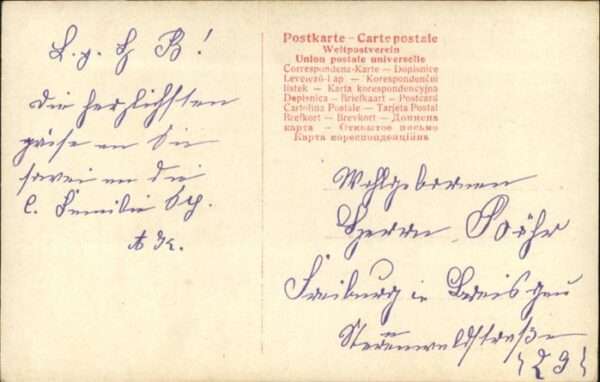 L. g. H B!
die herzlichsten
grüsse an Sie
sowei an die
l. Familie
Postkarte – Carte postale
Weltpostverein
Union postale universelle
Correspondenz-Karte – Dopisnice
Levelező-Lap – Korespondenční
lístek – Karta korespondencyjna
Dopisnica – Briefkaart – Postcard
Cartolina Postale – Tarjeta Postal
Brefkort – Brevkort – Дописна
карта – Открытое письмо
Карта кореспонденційна
Wohlgeboren
Herrn
Freiburg in Breisgau
29